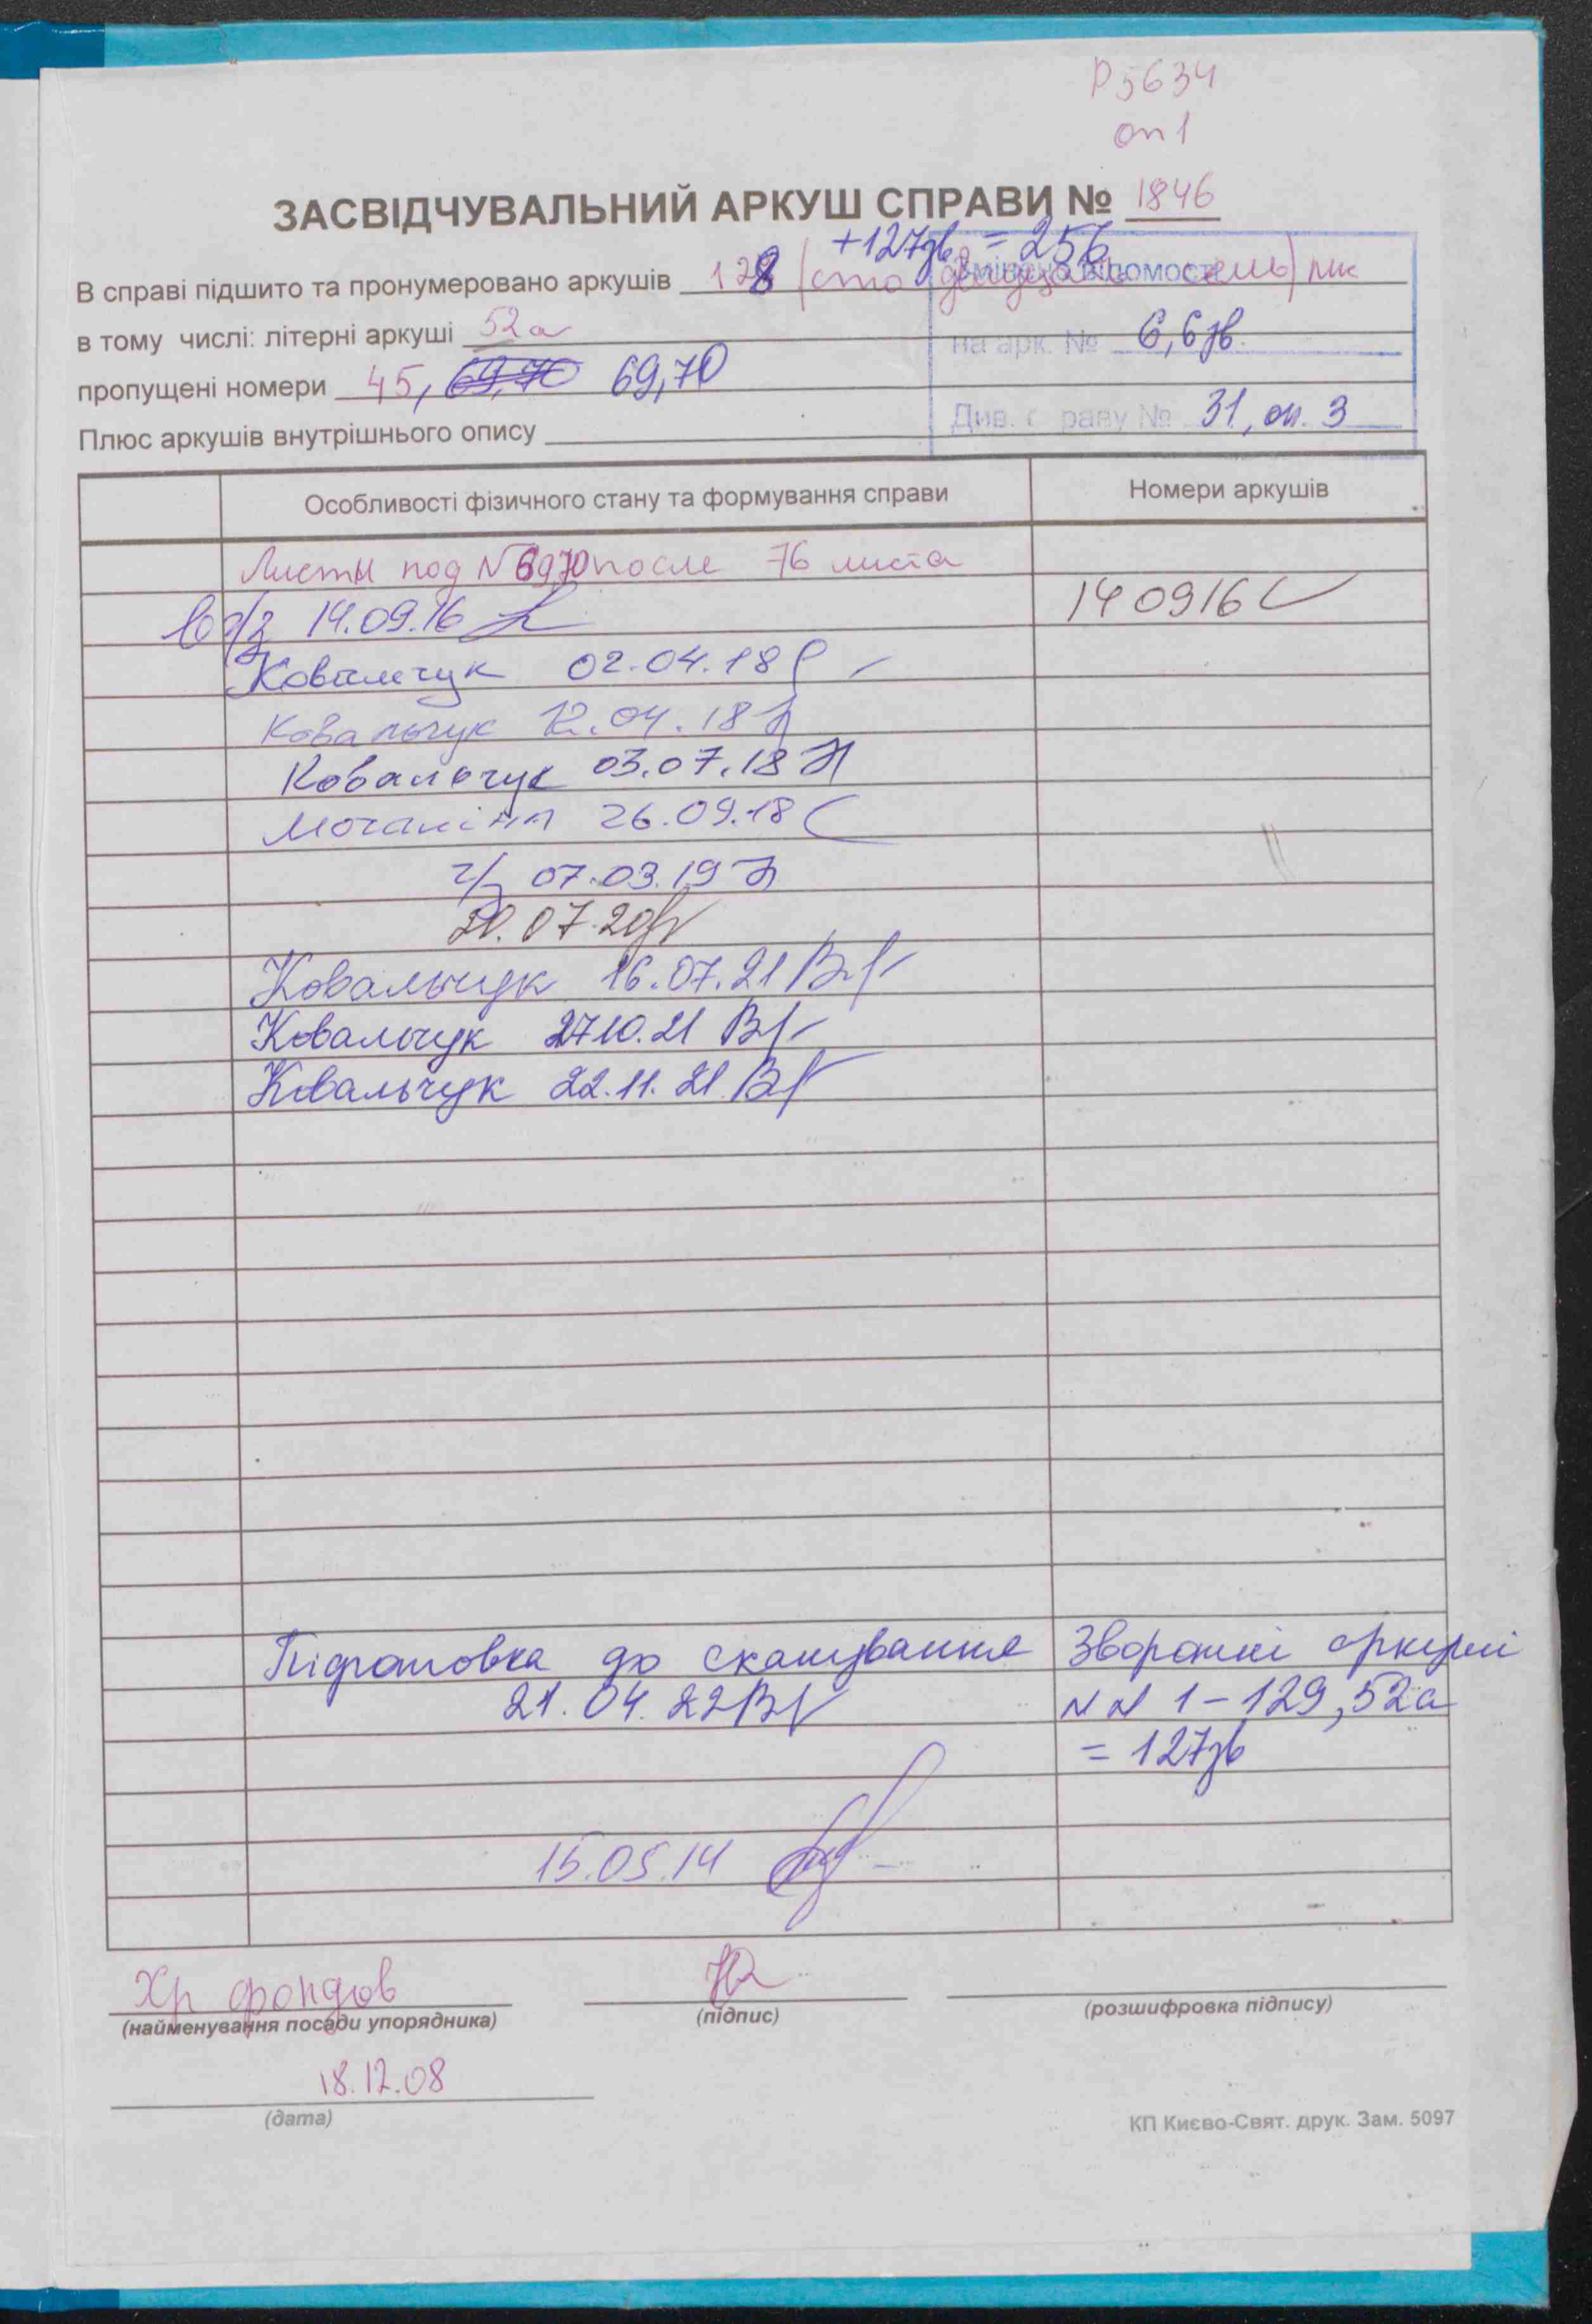 Р5634
оп1
ЗАСВІДЧУВАЛЬНИЙ АРКУШ СПРАВИ № 1846
+127зв = 256
В справі підшито та пронумеровано аркушів 128 (сто двадцать семь)
відомості
в тому числі: літерні аркуші 52а
на арк. № 6,6зв.
пропущені номери 45, 69,70 69,70
Див. справу № 31, оп. 3
Плюс аркушів внутрішнього опису
Особливості фізичного стану та формування справи
Номери аркушів
Листы под №69,70 после 76 листа
14.09.16
140916
Ковальчук 02.04.18
Ковальчук 12.04.18
Ковальчук 03.07.18
26.09.18
ч/з 07.03.19
20.07.20
Ковальчук 16.07.21
Ковальчук 27.10.21
Ковальчук 22.11.21
Підготовка до сканування
Зворотні аркуші
21.04.22
№№ 1-129, 52а
= 127зв
15.05.14
Хр фондов
(найменування посади упорядника)
(підпис)
(розшифровка підпису)
18.12.08
(дата)
КП Києво-Свят. друк. Зам. 5097